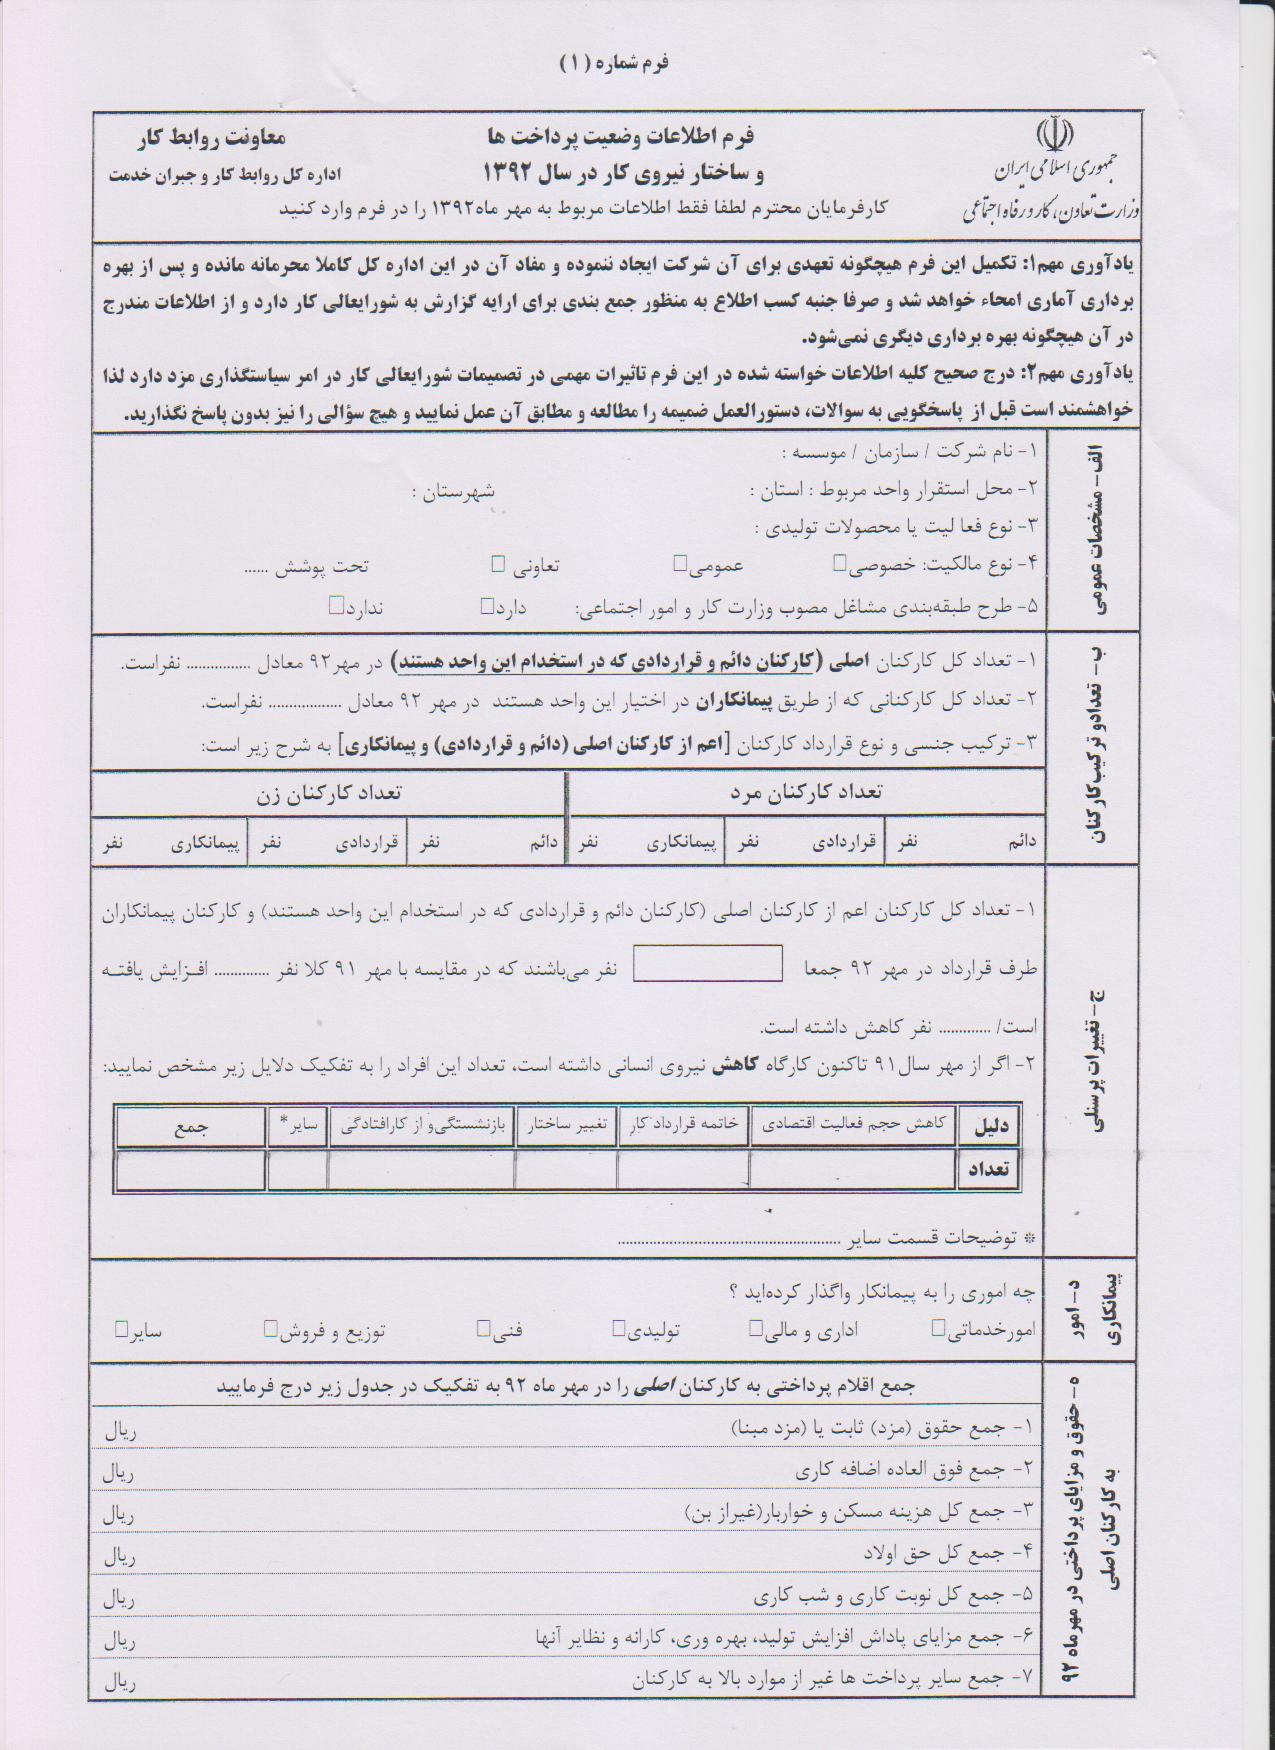 فرم شماره (۱)
جمهوری اسلامی ایران
وزارت تعاون، کار و رفاه اجتماعی
فرم اطلاعات وضعیت پرداخت ها
و ساختار نیروی کار در سال ۱۳۹۲
کارفرمایان محترم لطفا فقط اطلاعات مربوط به مهر ماه۱۳۹۲ را در فرم وارد کنید
معاونت روابط کار
اداره کل روابط کار و جبران خدمت
یادآوری مهم۱: تکمیل این فرم هیچگونه تعهدی برای آن شرکت ایجاد ننموده و مفاد آن در این اداره کل کاملا محرمانه مانده و پس از بهره
برداری آماری امحاء خواهد شد و صرفا جنبه کسب اطلاع به منظور جمع بندی برای ارایه گزارش به شورایعالی کار دارد و از اطلاعات مندرج
در آن هیچگونه بهره برداری دیگری نمی‌شود.
یادآوری مهم۲: درج صحیح کلیه اطلاعات خواسته شده در این فرم تاثیرات مهمی در تصمیمات شورایعالی کار در امر سیاستگذاری مزد دارد لذا
خواهشمند است قبل از پاسخگویی به سوالات، دستورالعمل ضمیمه را مطالعه و مطابق آن عمل نمایید و هیچ سؤالی را نیز بدون پاسخ نگذارید.
الف – مشخصات عمومی
۱- نام شرکت / سازمان / موسسه :
۲- محل استقرار واحد مربوط : استان : شهرستان :
۳- نوع فعا لیت یا محصولات تولیدی :
۴- نوع مالکیت: خصوصی□ عمومی□ تعاونی □ تحت پوشش ......
۵- طرح طبقه‌بندی مشاغل مصوب وزارت کار و امور اجتماعی: دارد□ ندارد□
ب – تعداد و ترکیب کارکنان
۱- تعداد کل کارکنان اصلی (کارکنان دائم و قراردادی که در استخدام این واحد هستند) در مهر۹۲ معادل ................ نفراست.
۲- تعداد کل کارکنانی که از طریق پیمانکاران در اختیار این واحد هستند در مهر ۹۲ معادل .................. نفراست.
۳- ترکیب جنسی و نوع قرارداد کارکنان [اعم از کارکنان اصلی (دائم و قراردادی) و پیمانکاری] به شرح زیر است:
تعداد کارکنان مرد تعداد کارکنان زن
دائم نفر قراردادی نفر پیمانکاری نفر دائم نفر قراردادی نفر پیمانکاری نفر
ج – تغییرات پرسنلی
۱- تعداد کل کارکنان اعم از کارکنان اصلی (کارکنان دائم و قراردادی که در استخدام این واحد هستند) و کارکنان پیمانکاران
طرف قرارداد در مهر ۹۲ جمعا نفر می‌باشند که در مقایسه با مهر ۹۱ کلا نفر ............. افـزایش یافتـه
است/ ............. نفر کاهش داشته است.
۲- اگر از مهر سال۹۱ تاکنون کارگاه کاهش نیروی انسانی داشته است، تعداد این افراد را به تفکیک دلایل زیر مشخص نمایید:
دلیل کاهش حجم فعالیت اقتصادی خاتمه قرارداد کار تغییر ساختار بازنشستگی‌و از کارافتادگی سایر* جمع
تعداد
* توضیحات قسمت سایر ........................................................
د – امور
پیمانکاری
چه اموری را به پیمانکار واگذار کرده‌اید ؟
امورخدماتی□ اداری و مالی□ تولیدی□ فنی□ توزیع و فروش□ سایر□
ه – حقوق و مزایای پرداختی در مهرماه ۹۲
به کارکنان اصلی
جمع اقلام پرداختی به کارکنان اصلی را در مهر ماه ۹۲ به تفکیک در جدول زیر درج فرمایید
۱- جمع حقوق (مزد) ثابت یا (مزد مبنا) ریال
۲- جمع فوق العاده اضافه کاری ریال
۳- جمع کل هزینه مسکن و خواربار(غیراز بن) ریال
۴- جمع کل حق اولاد ریال
۵- جمع کل نوبت کاری و شب کاری ریال
۶- جمع مزایای پاداش افزایش تولید، بهره وری، کارانه و نظایر آنها ریال
۷- جمع سایر پرداخت ها غیر از موارد بالا به کارکنان ریال